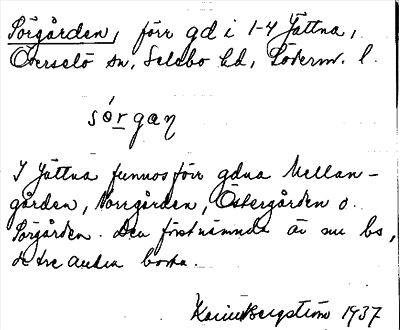 Sörgården, förr gd i 1-4 Jättna,
Överselö sn, Selebo hd, Söderm. l.
sórgaɳ
I Jättna funnos förr gdna Mellan-
gården, Norrgården, Östergården o.
Sörgården. Den förstnämnda är nu bs,
de tre andra borta.
Karin Bergström 1937